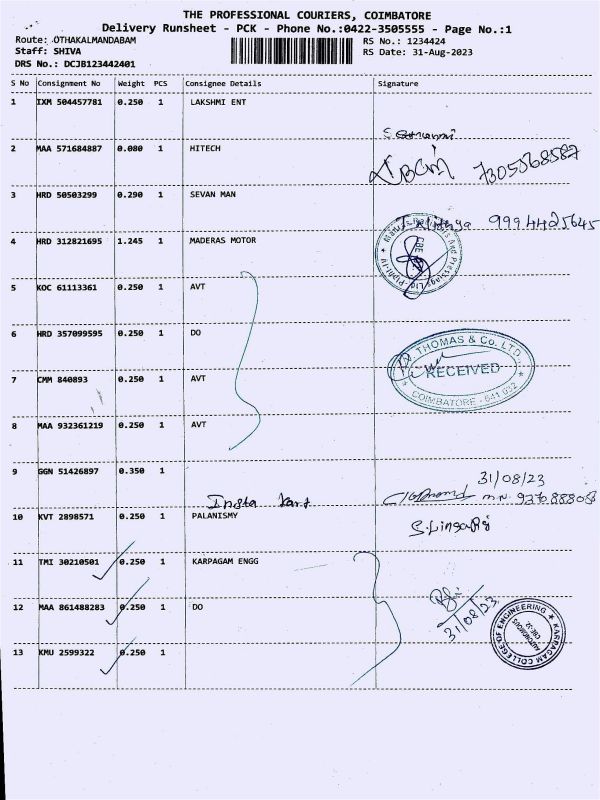 THE PROFESSIONAL COURIERS, COIMBATORE
Delivery Runsheet - PCK - Phone No.:0422-3505555 - Page No.:1
Route: OTHAKALMANDABAM RS No.: 1234424
Staff: SHIVA RS Date: 31-Aug-2023
DRS No.: DCJB123442401
S No Consignment No Weight PCS Consignee Details Signature
1 IXM 504457781 0.250 1 LAKSHMI ENT
2 MAA 571684887 0.080 1 HITECH
7305568587
3 HRD 50503299 0.290 1 SEVAN MAN
9994425645
4 HRD 312821695 1.245 1 MADERAS MOTOR
5 KOC 61113361 0.250 1 AVT
6 HRD 357099595 0.250 1 DO
THOMAS & Co. LTD.
RECEIVED
COIMBATORE - 641 032
7 CMM 840893 0.250 1 AVT
8 MAA 932361219 0.250 1 AVT
9 GGN 51426897 0.350 1
Insta Kart
31/08/23
10 KVT 2898571 0.250 1 PALANISMY
11 TMI 30210501 0.250 1 KARPAGAM ENGG
12 MAA 861488283 0.250 1 DO
31/08/23
KARPAGAM COLLEGE OF ENGINEERING
AUTONOMOUS
CBE-32
13 KMU 2599322 0.250 1